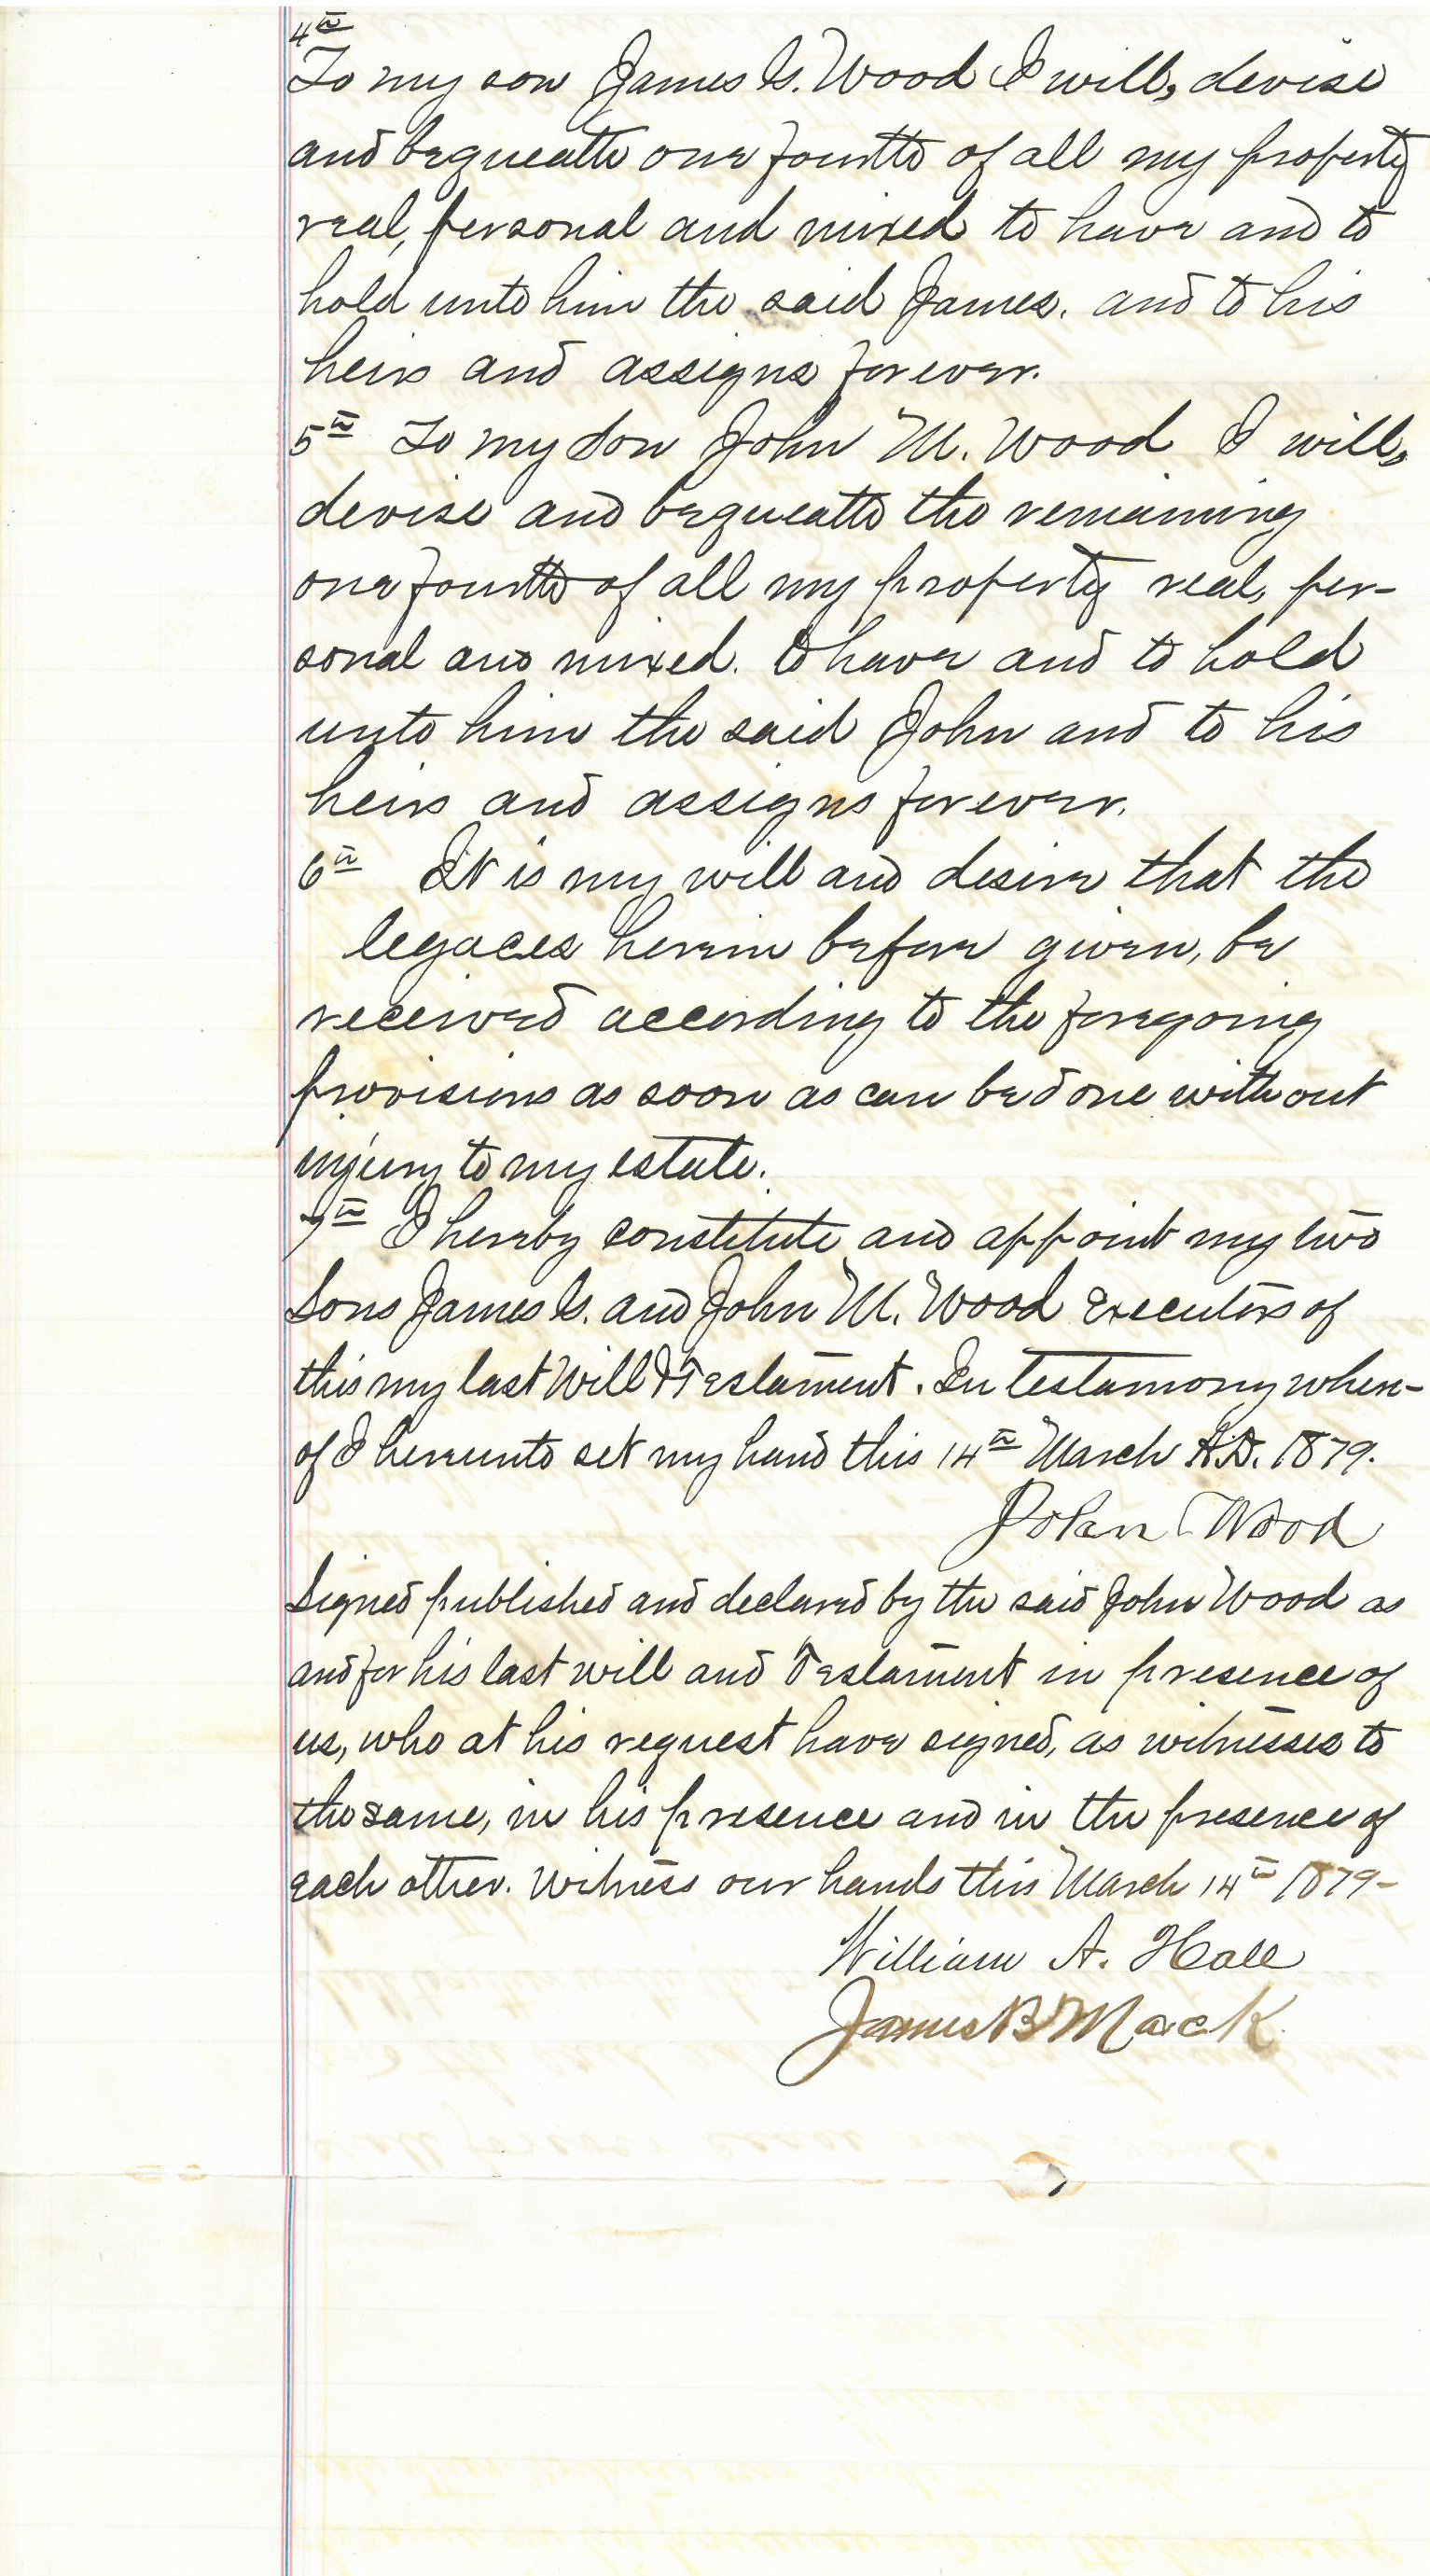 4th
To my son James G. Wood I will, devise
and bequeath one fourth of all my property
real, personal and mixed to have and to
hold unto him the said James. and to his
heirs and assigns forever.
5th To my Son John M. Wood I will,
devise and bequeath the remaining
one fourth of all my property real, per-
sonal and mixed. to have and to hold
unto him the said John and to his
heirs and assigns forever.
6th It is my will and desire that the
legaces herein before given, be
received according to the foregoing
provisions as soon as can be done without
injury to my estate.
7th I hereby constitute and appoint my two
Sons James G. and John M. Wood Executors of
this my last Will & Testament. In testamony where-
of I hereunto set my hand this 14th March A.D. 1879.
John Wood
Signed published and declared by the said John Wood as
and for his last will and Testament in presence of
us, who at his request have signed, as witnesses to
the same, in his presence and in the presence of
each other. Witness our hands this March 14th 1879-
William A. Hall
James B Mack